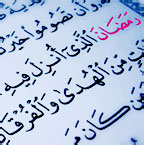 وَأَن تَصُومُوا خَيْرٌ
رَمَضَانَ الَّذِي أُنزِلَ فِيهِ
مِّنَ الْهُدَىٰ وَالْفُرْقَانِ
مَن كَانَ